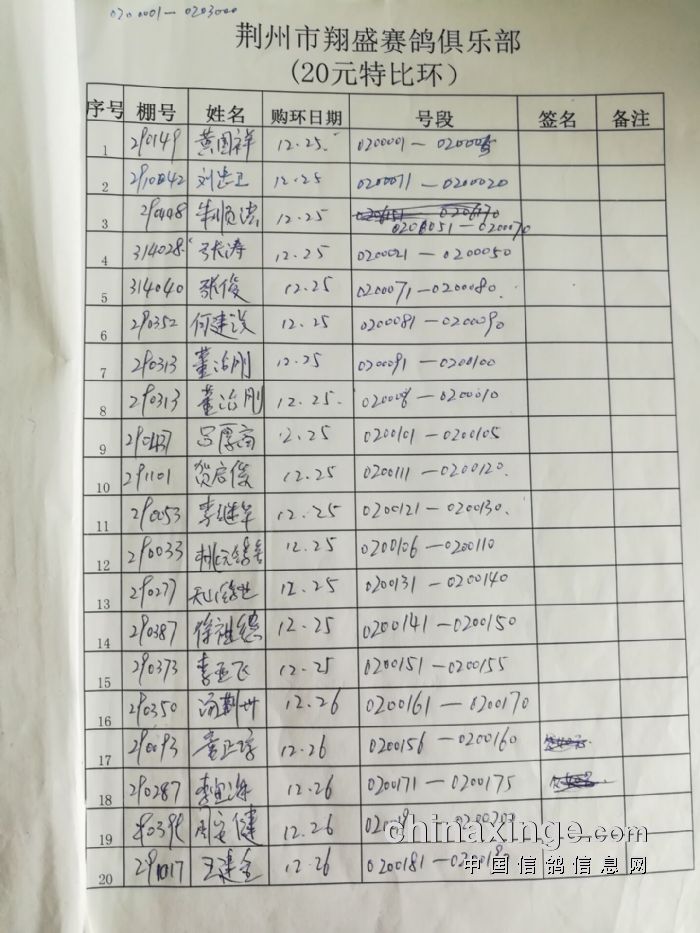 0200001-0203000
荆州市翔盛赛鸽俱乐部
(20元特比环)
序号 棚号 姓名 购环日期 号段 签名 备注
1 290149 黄国祥 12.25. 0200001-020000
2 刘忠卫 12.25 0200011-0200020
3 12.25 0200051-0200070
4 314028 张涛 12.25 0200021-0200050
5 314040 张俊 12.25 0200071-0200080.
6 290352 何建设 12.25 0200081-0200090
7 290313 董治刚 12.25 0200091-0200100
8 290313 董治刚 12.25. 020006-0200010
9 吕厚高 12.25 0200101-0200105
10 291101 贺启俊 12.25 0200111-0200120.
11 290053 李继军 12.25 0200121-0200130.
12 290033 12.25 0200106-0200110
13 290277 12.25 0200131-0200140
14 290387 徐祖德 12.25 0200141-0200150
15 290373 李亚飞 12.25 0200151-0200155
16 290350 12.26 0200161-0200170
17 290093 12.26 0200156-0200160
18 290287 12.26 0200171-0200175
19 周安健 12.26 0200200
20 王建全 12.26 0200181-020018
chinaxinge.com
中国信鸽信息网